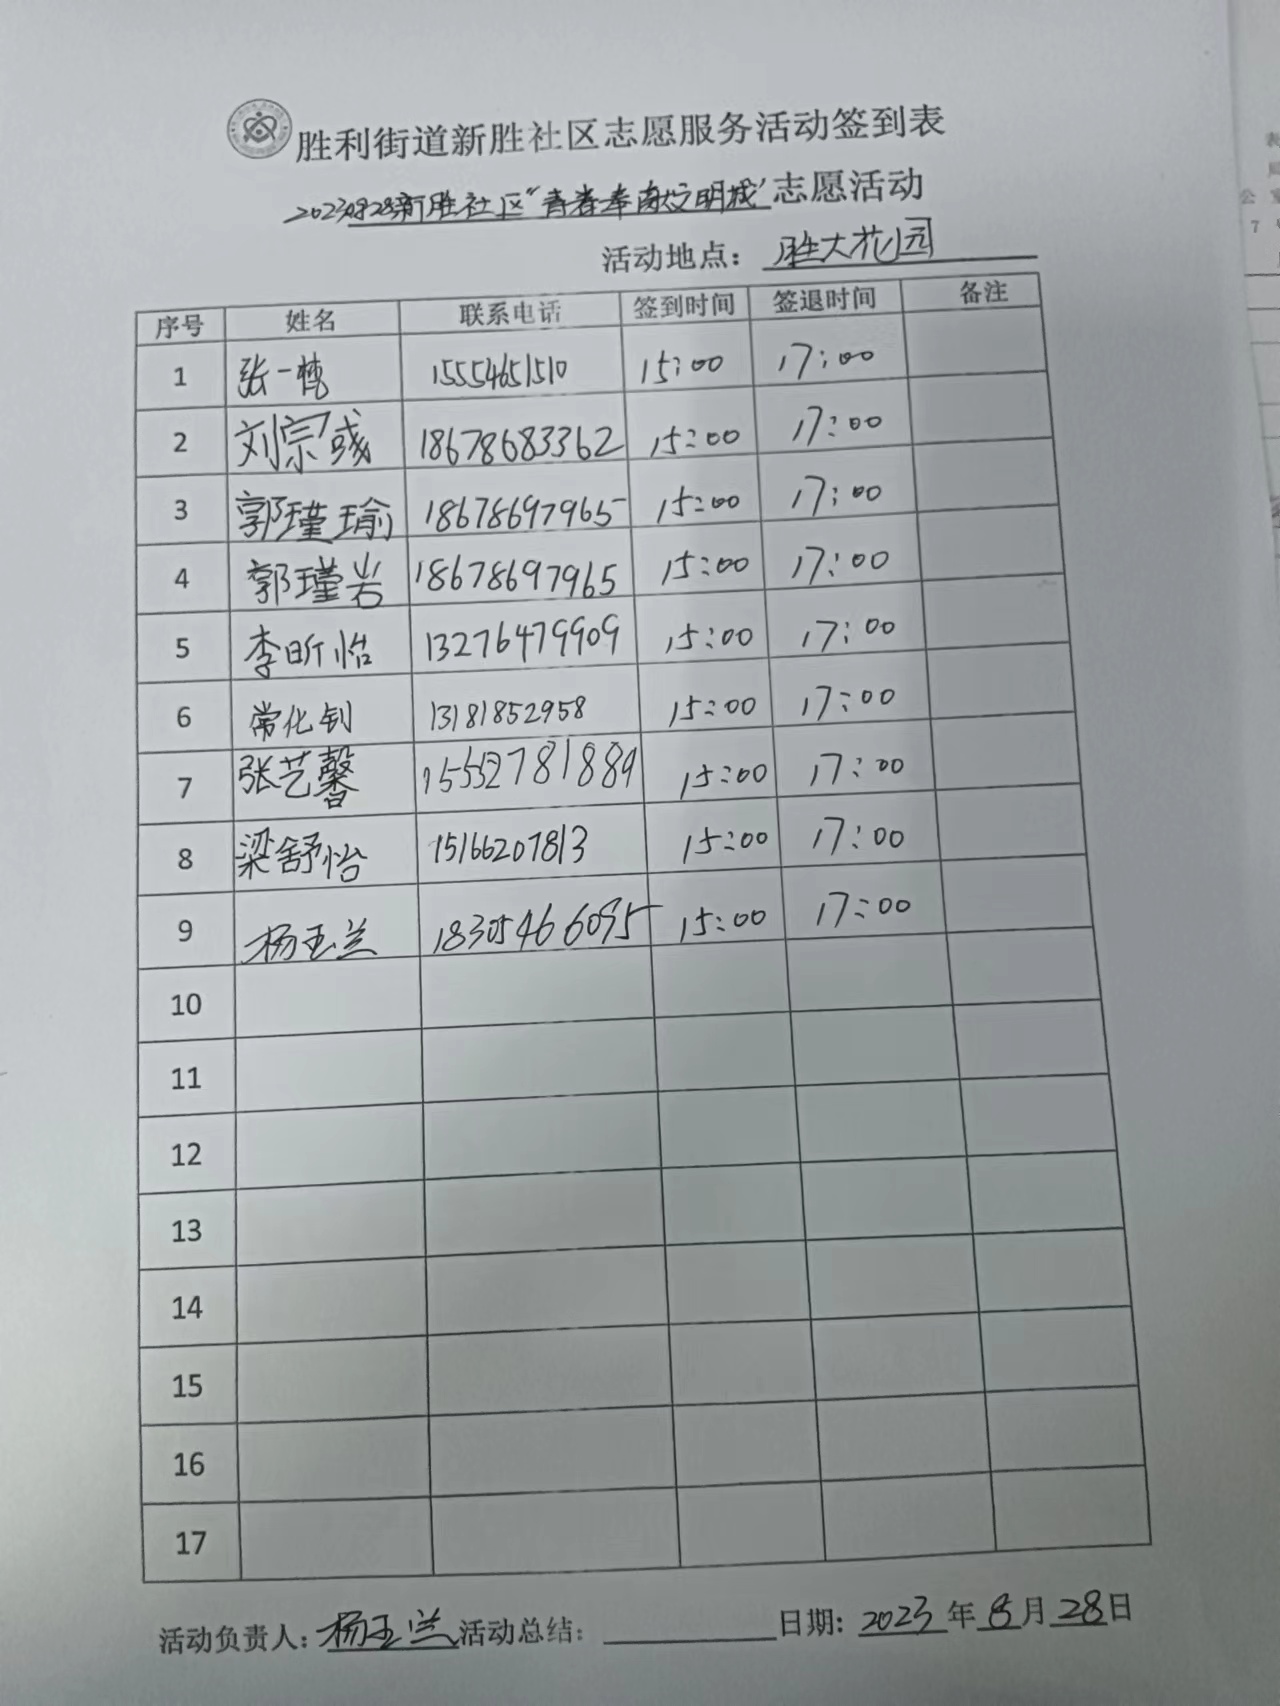 胜利街道新胜社区志愿服务活动签到表
20230828新胜社区"青春奉献文明城"志愿活动
活动地点：胜大花园
序号 姓名 联系电话 签到时间 签退时间 备注
1 张一 15554651510 15:00 17:00
2 刘宗彧 18678683362 15:00 17:00
3 郭瑾瑜 18678697965 15:00 17:00
4 郭瑾岩 18678697965 15:00 17:00
5 李昕怡 13276479909 15:00 17:00
6 常化钊 13181852958 15:00 17:00
7 张艺馨 15552781889 15:00 17:00
8 梁舒怡 15166207813 15:00 17:00
9 杨玉兰 18305466095 15:00 17:00
10
11
12
13
14
15
16
17
活动负责人：杨玉兰 活动总结： 日期: 2023年8月28日